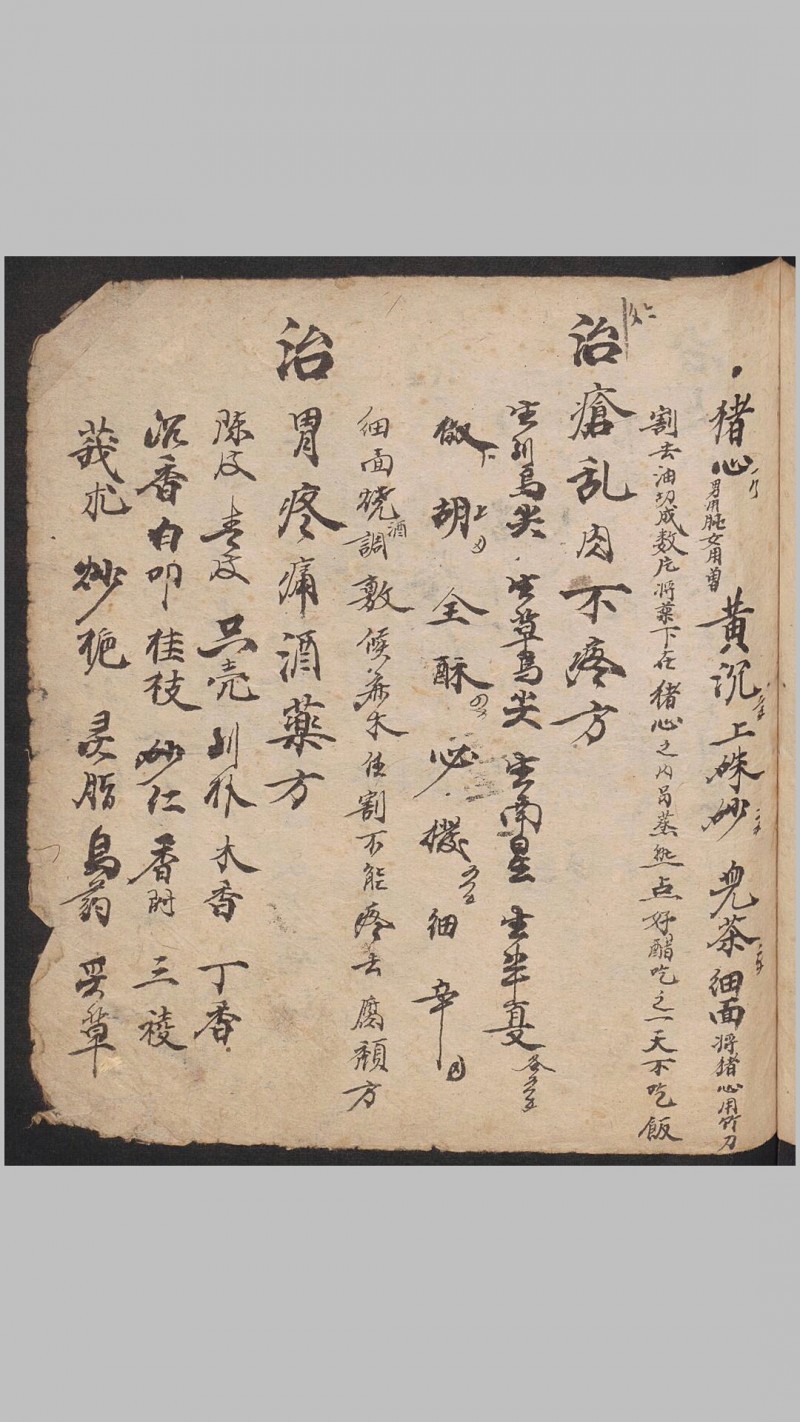 猪心一个男用䏝女用曾 黄沉二分 上硃砂二分 兒茶二分 细面 将猪心用竹刀
割去油切成数片将藥下在猪心之内另蒸熟点好醋吃之一天不吃飯
治瘡乱肉不疼方
生川烏尖 生草烏尖 生南星 生半夏各五分
做胡 全酥 必機五分 细辛
细面烧酒調敷候麻木任割不能疼去腐類方
治胃疼痛酒藥方
陈皮 青皮 只壳 川朴 木香 丁香
沉香 白叩 桂枝 砂仁 香附 三棱
莪朮 炒栀 灵脂 烏药 玉草